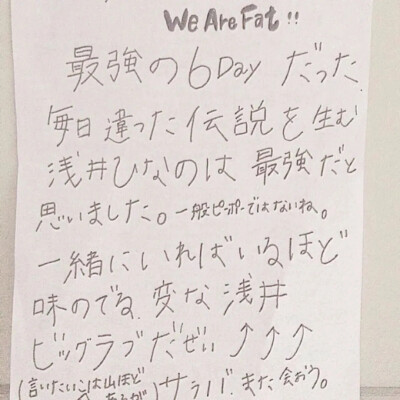 We Are Fat !!
最強の6Dayだった
毎日違った伝説を生む
浅井ひなのは最強だと
思いました。一般ピーポーではないね。
一緒にいればいるほど
味のでる、変な浅井
ビッグラブだぜぃ↑↑↑
(言いたいことは山ほどあるが)サラバ、また会おう。